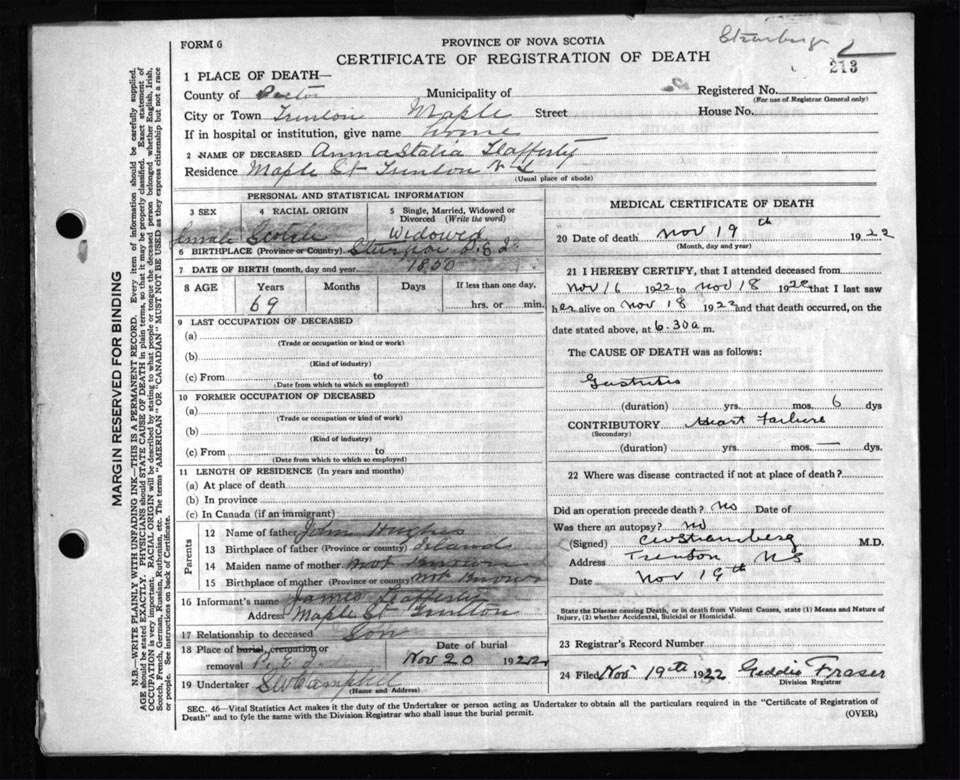 FORM 6
PROVINCE OF NOVA SCOTIA
CERTIFICATE OF REGISTRATION OF DEATH
213
1 PLACE OF DEATH—
County of Municipality of Registered No.
(For use of Registrar General only)
City or Town Trenton Maple Street House No.
If in hospital or institution, give name home
2 NAME OF DECEASED Annastatia Flafferty
Residence Maple St Trenton N S
(Usual place of abode)
PERSONAL AND STATISTICAL INFORMATION
3 SEX 4 RACIAL ORIGIN 5 Single, Married, Widowed or Divorced (Write the word)
female Scotch Widowed
6 BIRTHPLACE (Province or Country) P.E.I.
7 DATE OF BIRTH (month, day and year) 1850
8 AGE Years Months Days If less than one day,
69 hrs. or min.
9 LAST OCCUPATION OF DECEASED
(a)
(Trade or occupation or kind or work)
(b)
(Kind of industry)
(c) From to
(Date from which to which so employed)
10 FORMER OCCUPATION OF DECEASED
(a)
(Trade or occupation or kind of work)
(b)
(Kind of industry)
(c) From to
(Date from which to which so employed)
11 LENGTH OF RESIDENCE (In years and months)
(a) At place of death
(b) In province
(c) In Canada (if an immigrant)
Parents
12 Name of father John Hughes
13 Birthplace of father (Province or country) Island
14 Maiden name of mother Not Known
15 Birthplace of mother (Province or country) Not Known
16 Informant's name James Flafferty
Address Maple St Trenton
17 Relationship to deceased Son
18 Place of burial, cremation or removal P.E.I. Date of burial Nov 20 1922
19 Undertaker S W Campbell
(Name and Address)
MEDICAL CERTIFICATE OF DEATH
20 Date of death Nov 19th 1922
(Month, day and year)
21 I HEREBY CERTIFY, that I attended deceased from
Nov 16 1922 to Nov 18 1922 that I last saw
her alive on Nov 18 1922 and that death occurred, on the
date stated above, at 6.30 a m.
The CAUSE OF DEATH was as follows:
Gastritis
(duration) yrs. mos. 6 dys
CONTRIBUTORY Heart Failure
(Secondary)
(duration) yrs. mos. — dys.
22 Where was disease contracted if not at place of death?
Did an operation precede death? No Date of
Was there an autopsy? No
(Signed) CW Stramberg M.D.
Address Trenton NS
Date Nov 19th
State the Disease causing Death, or is death from Violent Causes, state (1) Means and Nature of
Injury, (2) whether Accidental, Suicidal or Homicidal.
23 Registrar's Record Number
24 Filed Nov 19th 1922 Geddie Fraser
Division Registrar
SEC. 46—Vital Statistics Act makes it the duty of the Undertaker or person acting as Undertaker to obtain all the particulars required in the "Certificate of Registration of
Death" and to fyle the same with the Division Registrar who shall issue the burial permit.
(OVER)
MARGIN RESERVED FOR BINDING
N.B.—WRITE PLAINLY WITH UNFADING INK—THIS IS A PERMANENT RECORD. Every item of information should be carefully supplied.
AGE should be stated EXACTLY. PHYSICIANS should STATE CAUSE OF DEATH in plain terms, so that it may be properly classified. Exact statement of
OCCUPATION is very important. RACIAL ORIGIN will be described by stating to what people or tongue the deceased person belonged whether English, Irish,
Scotch, French, German, Russian, Ruthenian, etc. The terms "AMERICAN" OR "CANADIAN" MUST NOT BE USED as they express citizenship but not a race
or people. See instructions on back of Certificate.